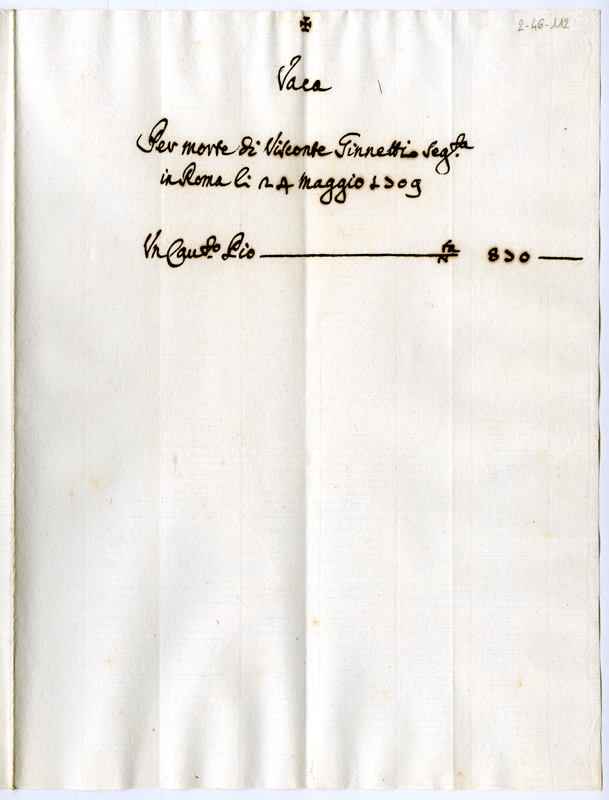 ✠
2-46-112
Vaca
Per morte di Visconte Ginnetti seg.ta
in Roma li 24 Maggio 1709
Vn Cau.to Pio N 870